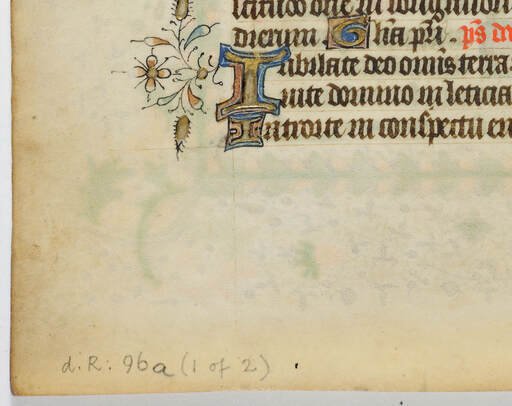 in longitudinem
dierum. Gl'ia p̄ri. ps̄
Jubilate deo omīs terra
uite domino in leticia
Introite in conspectu
d. R: 96a (1 of 2)